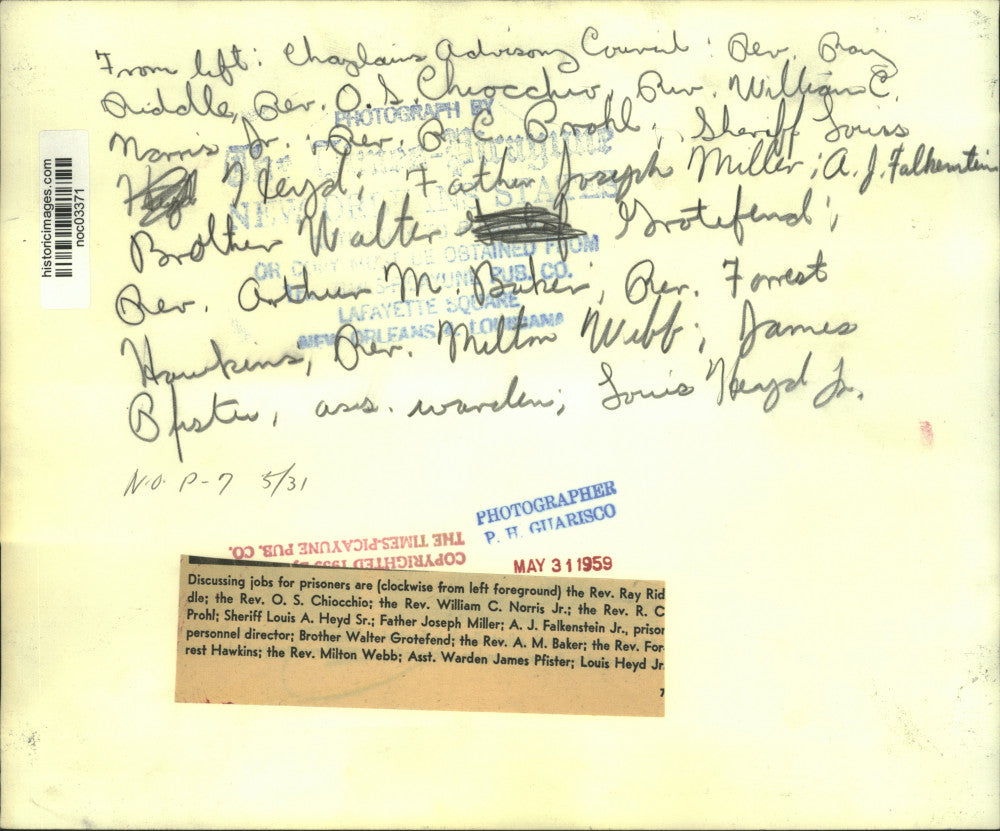 From left: Chaplains Advisory Council: Rev. Ray
Riddle, Rev. O. S. Chiocchio, Rev. William C.
Norris Jr.; Rev. R. C. Prohl; Sheriff Louis
Heyd; Father Joseph Miller; A. J. Falkenstein
Brother Walter Grotefend;
Rev. Arthur M. Baker, Rev. Forrest
Hawkins, Rev. Milton Webb; James
Pfister, ass. warden; Louis Heyd Jr.
PHOTOGRAPH BY
The Times-Picayune
NEW ORLEANS STATES
OBTAINED FROM
PUB. CO.
LAFAYETTE SQUARE
NEW ORLEANS, LOUISIANA
historicimages.com
noc03371
N.O. P-7 5/31
PHOTOGRAPHER
P. H. GUARISCO
COPYRIGHTED
THE TIMES-PICAYUNE PUB. CO.
MAY 31 1959
Discussing jobs for prisoners are (clockwise from left foreground) the Rev. Ray Rid
dle; the Rev. O. S. Chiocchio; the Rev. William C. Norris Jr.; the Rev. R. C
Prohl; Sheriff Louis A. Heyd Sr.; Father Joseph Miller; A. J. Falkenstein Jr., prisor
personnel director; Brother Walter Grotefend; the Rev. A. M. Baker; the Rev. For
rest Hawkins; the Rev. Milton Webb; Asst. Warden James Pfister; Louis Heyd Jr
7